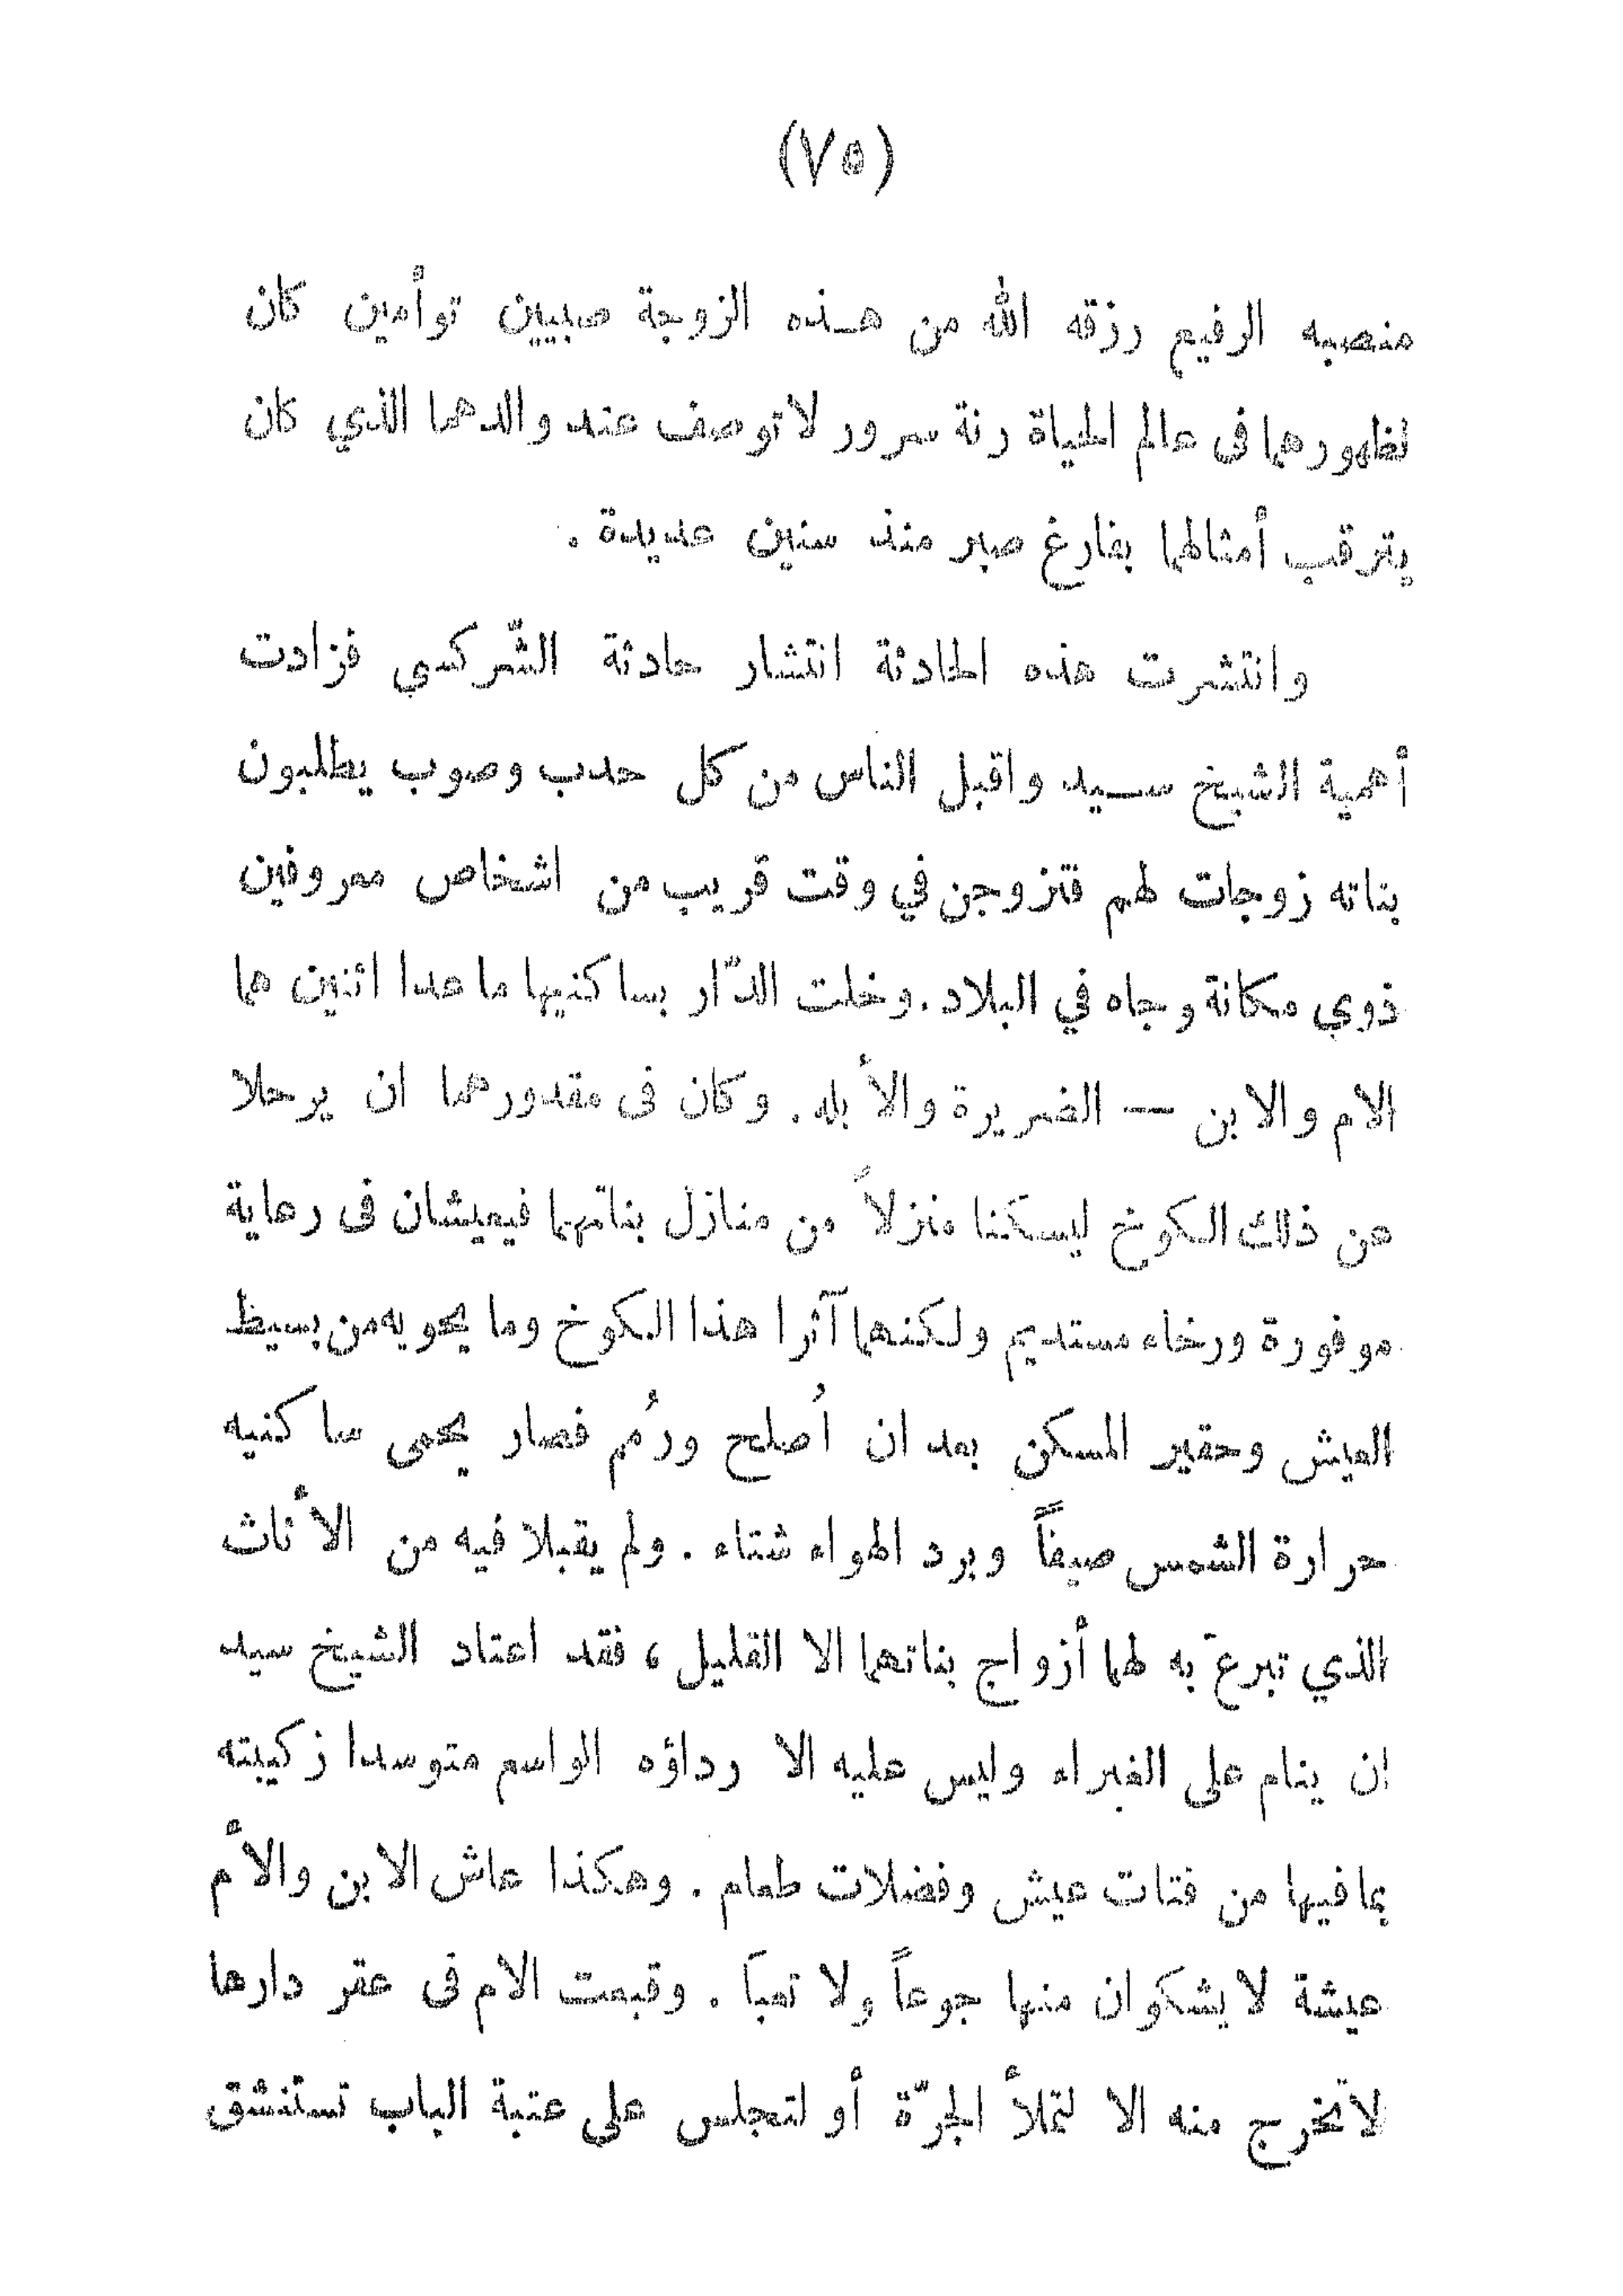 (٧٥)
منصبه الرفيع رزقه الله من هـذه الزوجة صبيين توأمين كان
لظهورهما فى عالم الحياة رنة سرور لا توصف عند والدهما الذي كان
يترقب أمثالهما بفارغ صبر منذ سنين عديدة .
وانتشرت هذه الحادثة انتشار حادثة الشّركسي فزادت
أهمية الشيخ سـيد واقبل الناس من كل حدب وصوب يطلبون
بناته زوجات لهم فتزوجن في وقت قريب من اشخاص معروفين
ذوي مكانة وجاه في البلاد . وخلت الدّار بساكنيها ما عدا اثنين هما
الام والابن — الضريرة والأبله . وكان فى مقدورهما ان يرحلا
عن ذلك الكوخ ليسكنا منزلاً من منازل بناتهما فيعيشان فى رعاية
موفورة ورخاء مستديم ولكنهما آثرا هذا الكوخ وما يحويه من بسيط
العيش وحقير المسكن بعد ان اُصلح ورُم فصار يحمى ساكنيه
حرارة الشمس صيفاً وبرد الهواء شتاء . ولم يقبلا فيه من الأثاث
الذي تبرعّ به لهما أزواج بناتهما الا القليل ، فقد اعتاد الشيخ سيد
ان ينام على الغبراء وليس عليه الا رداؤه الواسع متوسدا زكيبته
بما فيها من فتات عيش وفضلات طعام . وهكذا عاش الابن والأم
عيشة لا يشكوان منها جوعاً ولا تعباً . وقبعت الام فى عقر دارها
لا تخرج منه الا لتملأ الجرّة أو لتجلس على عتبة الباب تستنشق